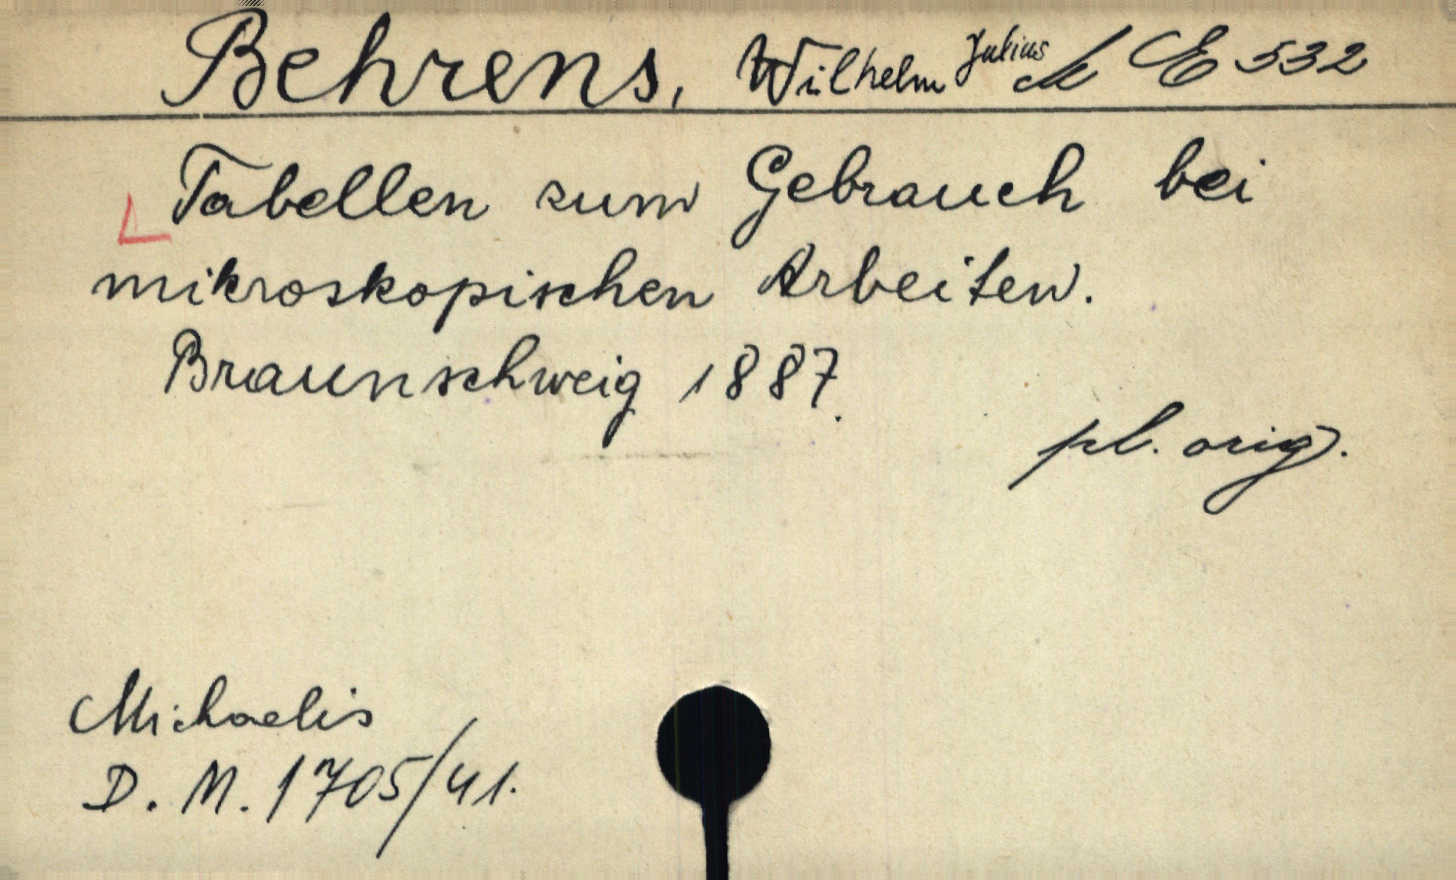 Behrens, Wilhelm Julius E 532
Tabellen zum Gebrauch bei
mikroskopischen Arbeiten.
Braunschweig 1887.
pl. orig.
Michaelis
D. M. 1705/41.